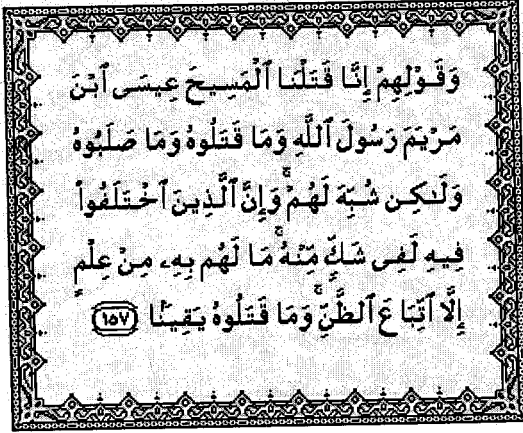 وَقَوْلِهِمْ إِنَّا قَتَلْنَا ٱلْمَسِيحَ عِيسَى ٱبْنَ
مَرْيَمَ رَسُولَ ٱللَّهِ وَمَا قَتَلُوهُ وَمَا صَلَبُوهُ
وَلَٰكِن شُبِّهَ لَهُمْ ۚ وَإِنَّ ٱلَّذِينَ ٱخْتَلَفُوا۟
فِيهِ لَفِى شَكٍّ مِّنْهُ ۚ مَا لَهُم بِهِۦ مِنْ عِلْمٍ
إِلَّا ٱتِّبَاعَ ٱلظَّنِّ ۚ وَمَا قَتَلُوهُ يَقِينًۢا ١٥٧